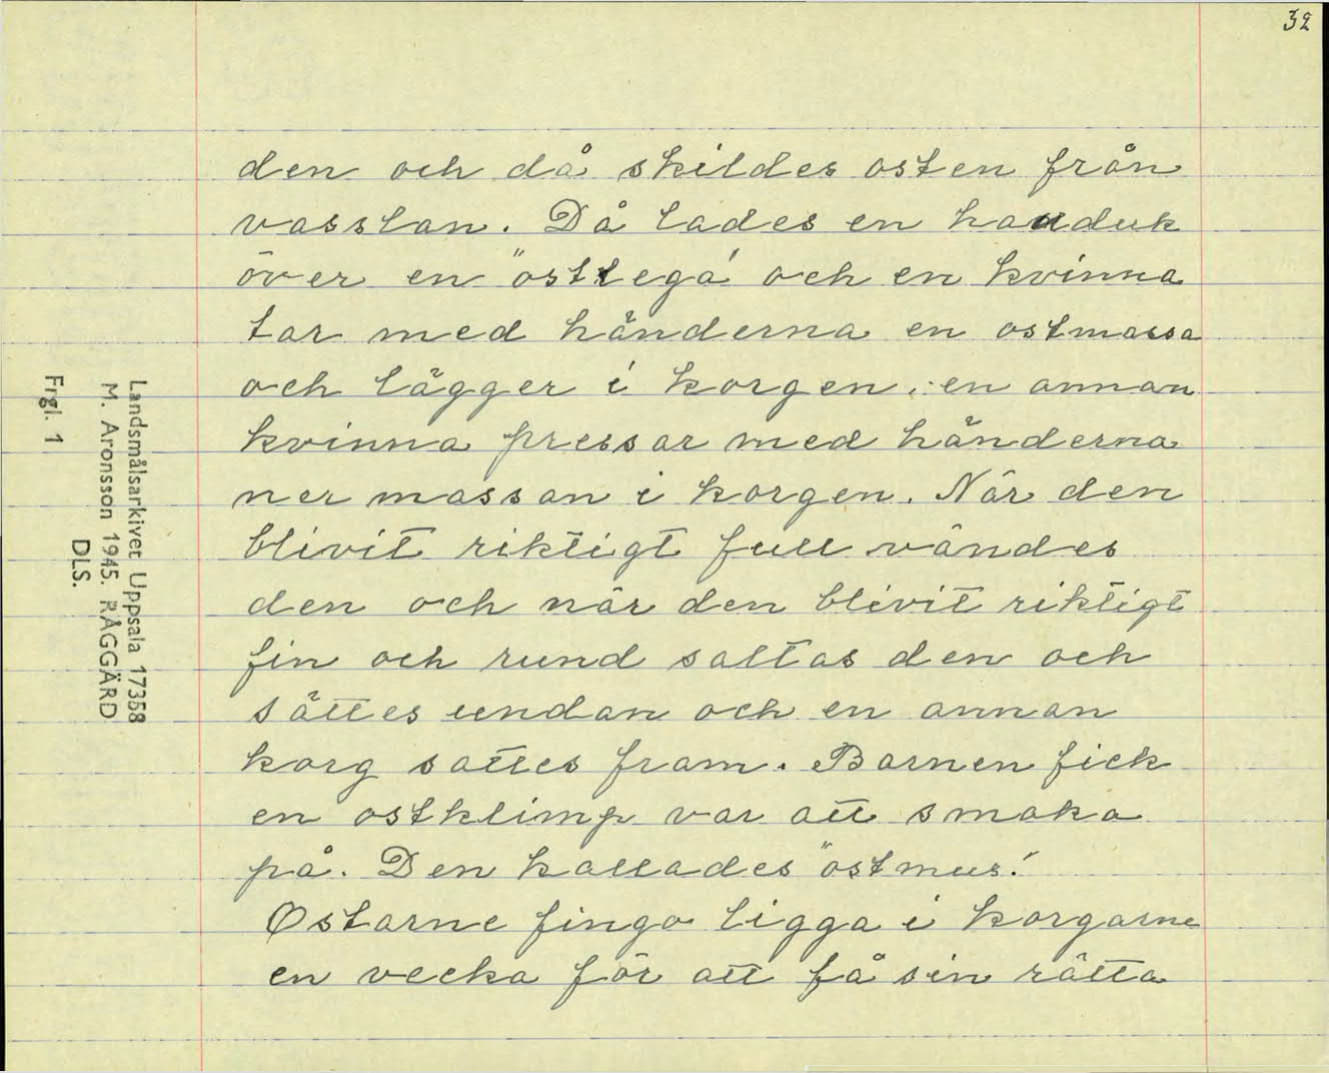 32
den och då skildes osten från
vasslan. Då lades en handuk
över en "ostlega" och en kvinna
tar med händerna en ostmassa
och lägger i korgen, en annan
kvinna pressar med händerna
ner massan i korgen. När den
blivit riktigt full vändes
den och när den blivit riktigt
fin och rund saltas den och
sättes undan och en annan
korg sattes fram. Barnen fick
en ostklimp var att smaka
på. Den kallades "ostmus".
Ostarne fingo ligga i korgarne
en vecka för att få sin rätta
Landsmålsarkivet Uppsala 17358
M. Aronsson 1945. RÅGGÄRD
DLS.
Frgl. 1